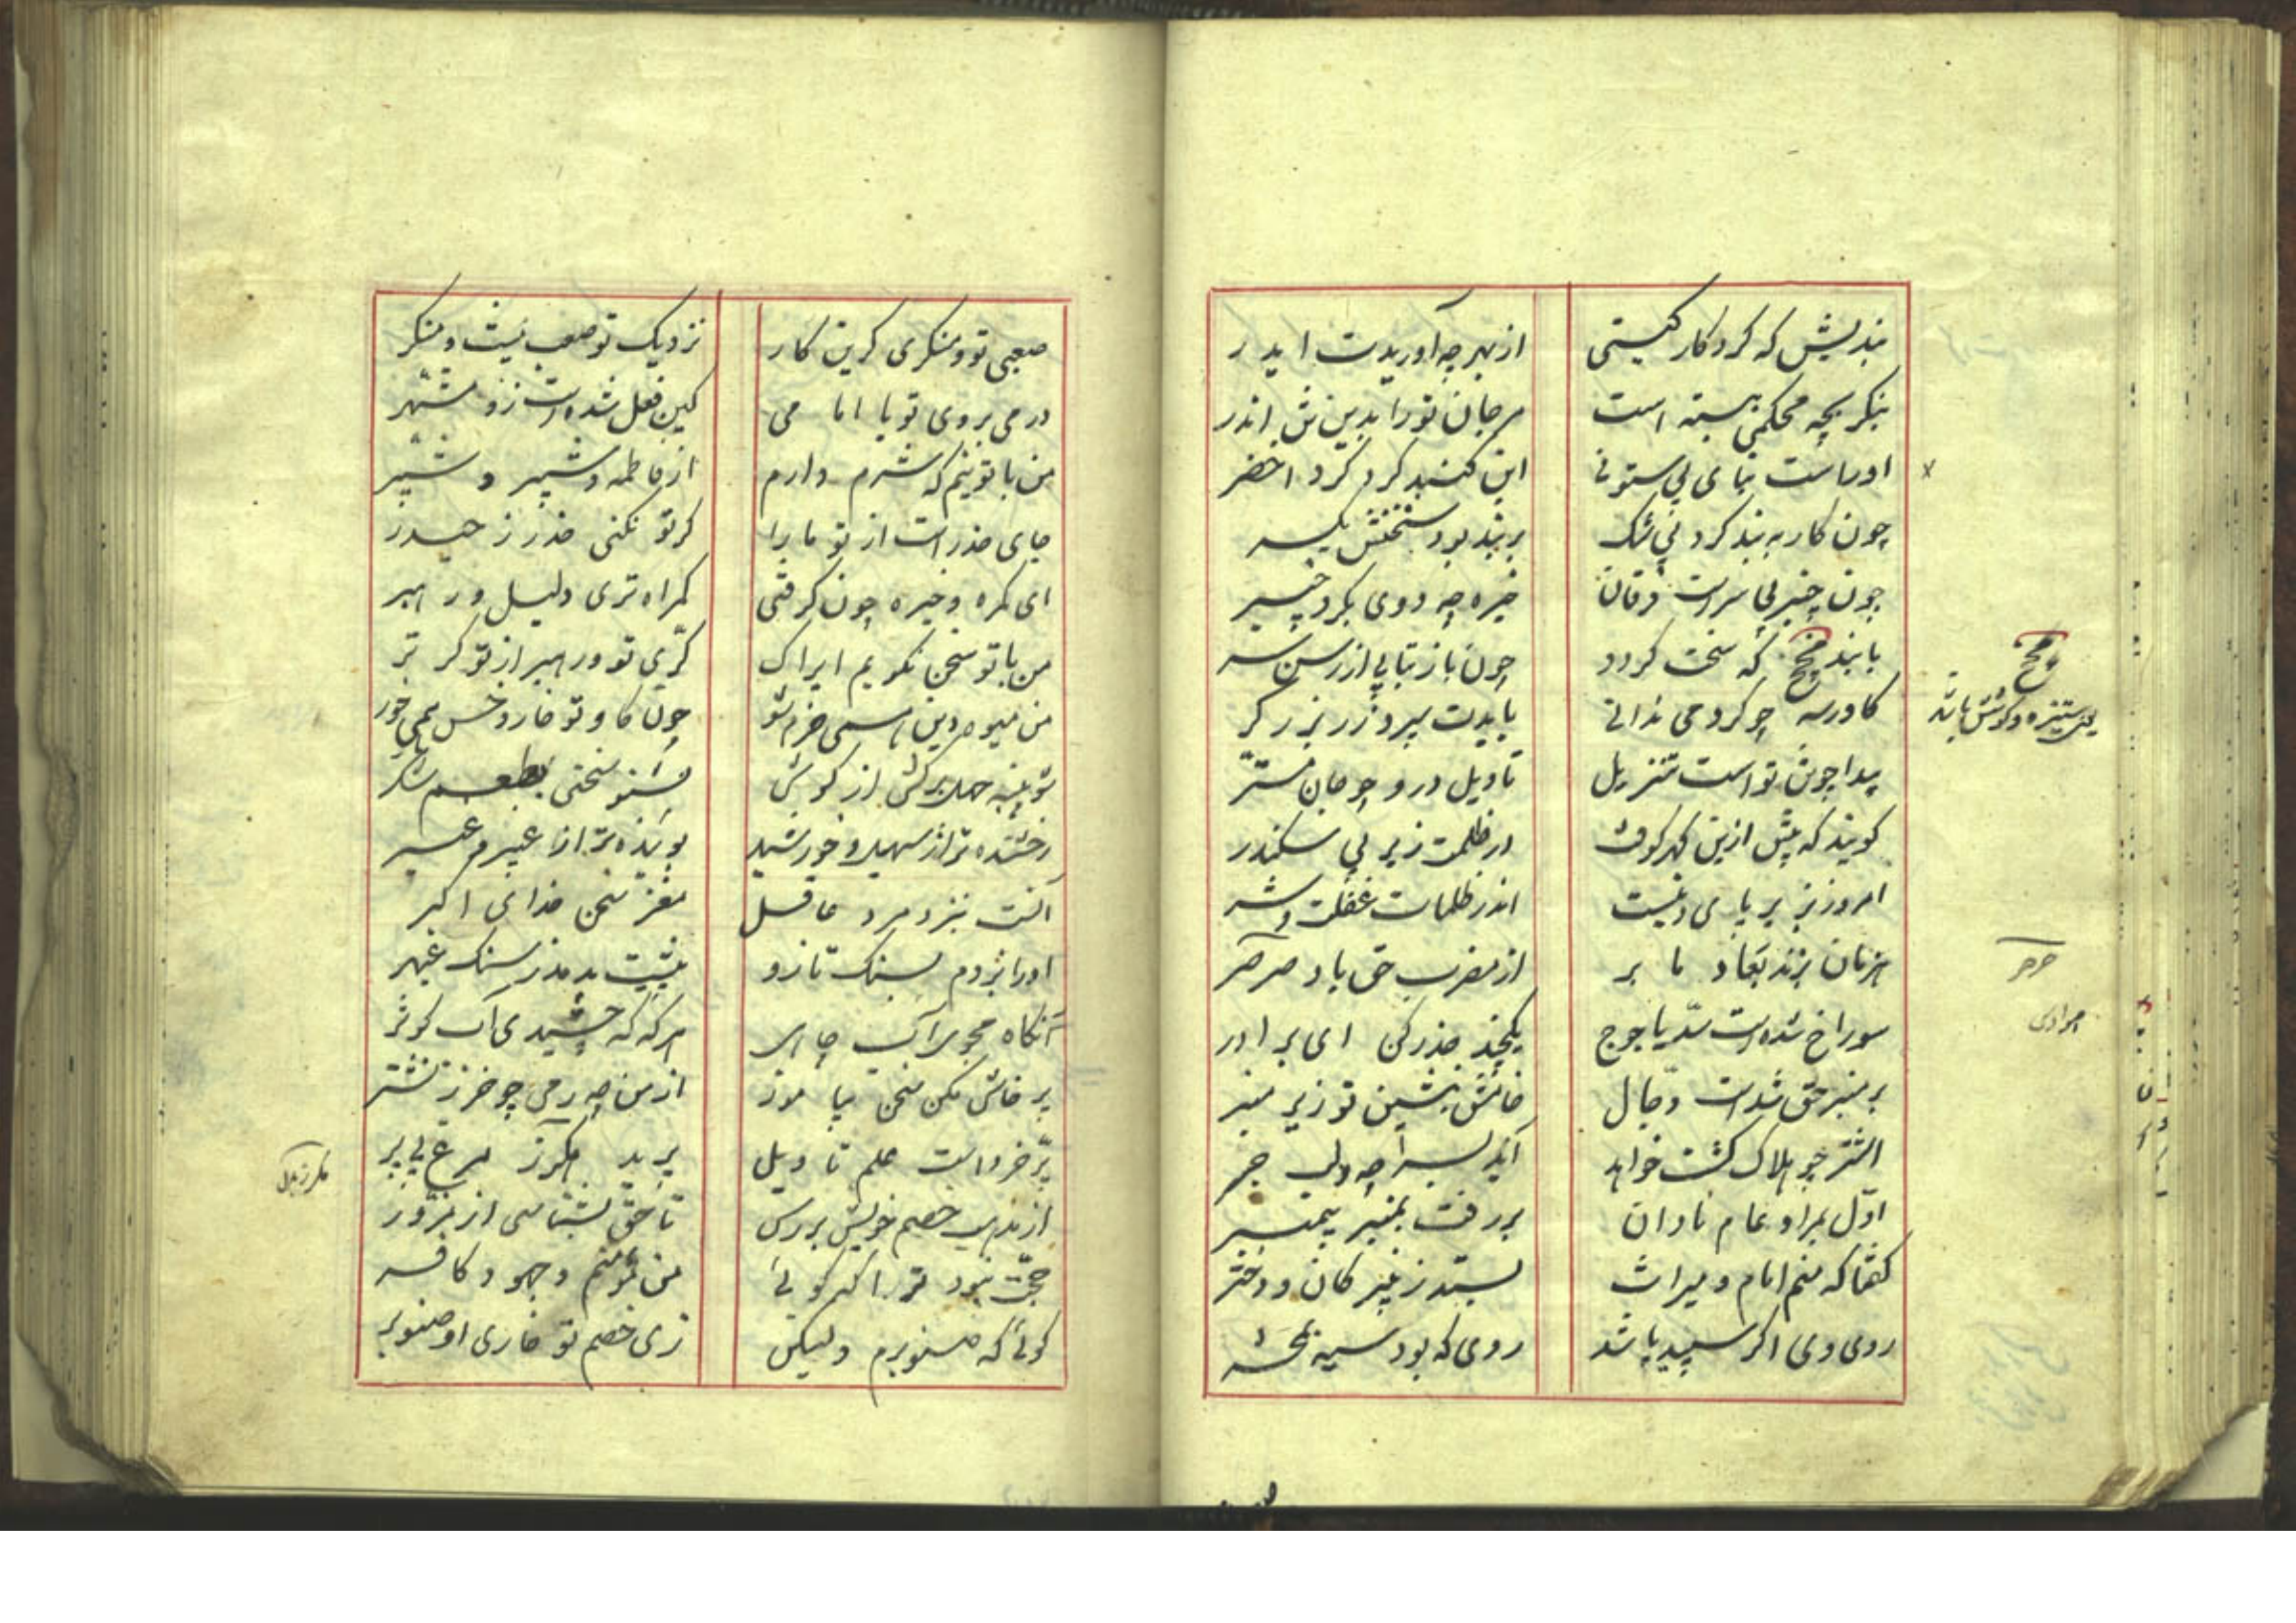 بندیش که کردکار کیتی از بهر چه آوریدت ایدر
بنکر بچه محکمی ببسته است مرجان تو را بدین تن اندر
اوراست بنای بی ستونی این کنبد کرد کرد اخضر
چون کار به بند کرد بی شک بر بند بود سخنش یکسر
چون چنبر بی سر است فرقان خیره چه دوی بکرد چنبر
با بند مچخ که سخت کردد چون باز بتابی از رسن سر
کاورسه چو کرد می ندانی بایدت سپرد زر بزرکر
پیدا چو تن تو است تنزیل تاویل درو چو جان مستر
کویند که پیش ازین کهر کوفت در ظلمت زیر پی سکندر
امروز بزیر پای دینست اندر ظلمات غفلت و شر
هزمان بزند بعاد ما بر از مغرب حق باد صرصر
سوراخ شده است سد یاجوج یکچند حذر کن ای برادر
بر منبر حق شده است دجال خامش بنشین تو زیر منبر
اشتر چو هلاک کشت خواهد آید بسر چه و لب جر
اول بمراد عام نادان بر رفت بمنبر پیمبر
کفتا که منم امام و میراث بستد ز نبیر کان و دختر
روی وی اکر سپید باشد روی که بود سیه بمحشر
مچخ
یعنی ستیزه و کوشش باشد
جر جر
صعبی تو و منکری کر این کار نزدیک تو صعب نیست و منکر
ورمی بروی تو با امامی کین فعل شده است زو مشهر
من با تو نیم که شرم دارم از فاطمه و شبیر و شبر
جای حذر است از تو ما را کر تو نکنی حذر ز حیدر
ای کمره و خیره چون کرفتی کمراه تری دلیل و رهبر
من با تو سخن نکویم ایراک کری تو و رهبر از تو کر تر
من میوه دین همی خرم شو چون کاو تو خار و خس همی خور
شو پنبه جهل برکش از کوش بشنو سخنی بطعم شکر
رخشنده تر از سهیل و خورشید بوینده تر از عبیر و عنبر
آنست بنزد مرد عاقل مغز سخن خدای اکبر
او را بردم بسنک تا زو بنشیت بدمذر سنک عبهر
آنکاه مجوی آب چاهی هرکه که چشیدی آب کوثر
پرخاش مکن سخن بیاموز از من چه رمی چو خر ز نشتر
پر خرد است علم تاویل پرید هکرز مرغ بی پر
از مذهب خصم خویش بررس تا حق بشناسی از مزور
حجت نبود ترا که کوئی من مؤمنم و جهود کافر
کوئی که صنوبرم ولیکن زی خصم تو خاری او صنوبر
هکرز